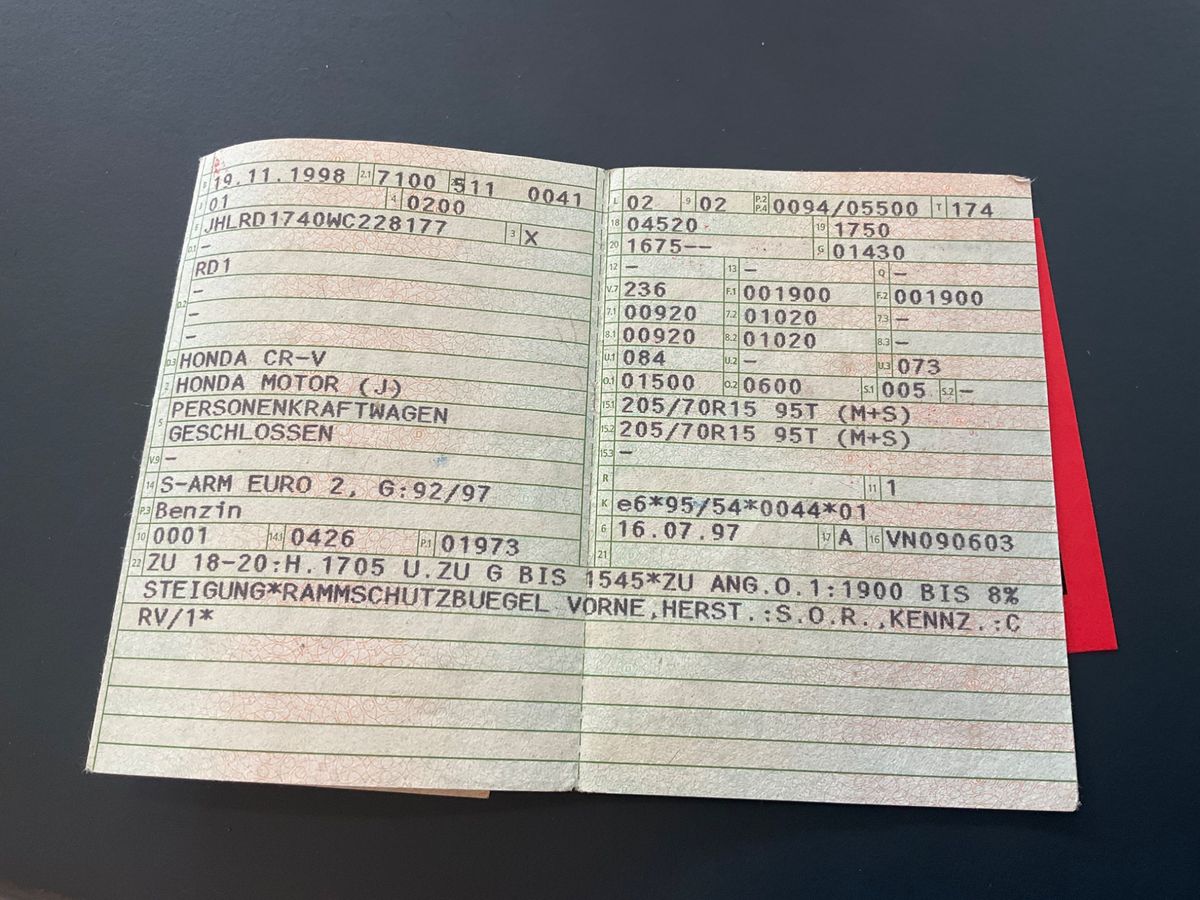 B 19.11.1998 2.1 7100 2.2 511 0041
J 01 4 0200
E JHLRD1740WC228177 3 X
D.1 –
D.2 RD1
–
–
–
D.3 HONDA CR-V
2 HONDA MOTOR (J)
5 PERSONENKRAFTWAGEN
GESCHLOSSEN
V.9 –
14 S-ARM EURO 2, G:92/97
P.3 Benzin
10 0001 14.1 0426 P.1 01973
L 02 9 02 P.2 P.4 0094/05500 T 174
18 04520 19 1750
20 1675-- G 01430
12 – 13 – Q –
V.7 236 F.1 001900 F.2 001900
7.1 00920 7.2 01020 7.3 –
8.1 00920 8.2 01020 8.3 –
U.1 084 U.2 – U.3 073
O.1 01500 O.2 0600 S.1 005 S.2 –
15.1 205/70R15 95T (M+S)
15.2 205/70R15 95T (M+S)
15.3 –
R 11 1
K e6*95/54*0044*01
6 16.07.97 17 A 16 VN090603
21
22 ZU 18-20:H.1705 U.ZU G BIS 1545*ZU ANG.O.1:1900 BIS 8%
STEIGUNG*RAMMSCHUTZBUEGEL VORNE,HERST.:S.O.R.,KENNZ.:C
RV/1*